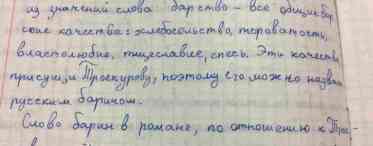 из значений слова барство – все общие бар-
ские качества: хлебосольство, тороватость,
властолюбие, тщеславие, спесь. Эти качества
присущи Троекурову, поэтому его можно назвать
русским баричом.
Слово барин в романе, по отношению к Трое-